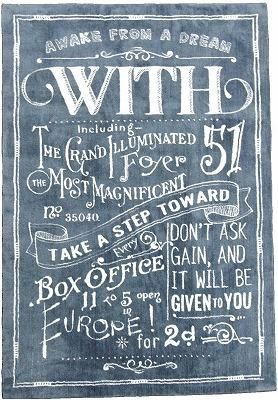 AWAKE FROM A DREAM
WITH
Including
THE GRAND ILLUMINATED
Foyer
51
THE MOST MAGNIFICENT
No. 35040.
TAKE A STEP TOWARD
Every
BOX OFFICE
11 TO 5 open
in
EUROPE!
DON'T ASK
GAIN, AND
IT WILL BE
GIVEN TO YOU
* for 2d